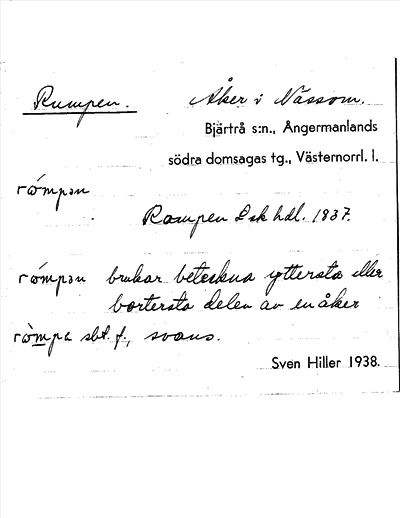 Rumpen. Åker i Nässom.
Bjärtrå s:n., Ångermanlands
södra domsagas tg., Västernorrl. l.
rómpən
Rampen Lsk hdl. 1837.
rómpən brukar beteckna yttersta eller
bortersta delen av en åker
ròmpa sbt. f., svans.
Sven Hiller 1938.